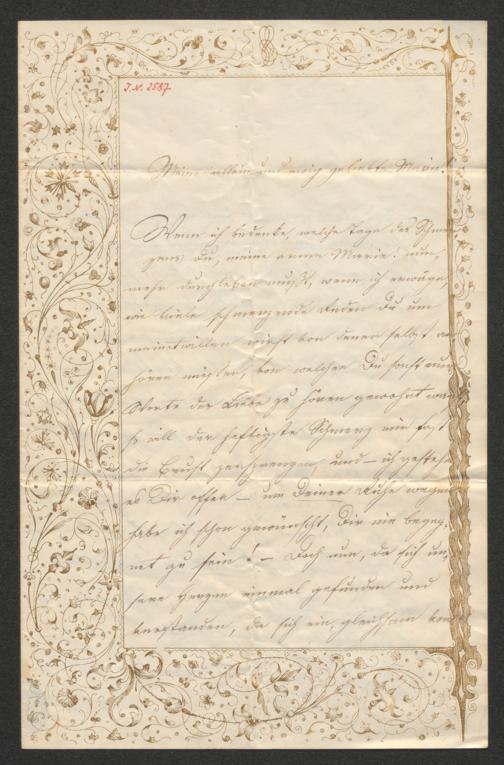 I. N. 2587
Meine allein und ewig geliebte Marie!
Wenn ich bedenke, welche Tage des Schmer-
zens Du, meine arme Marie! nun-
mehr durchleben mußt, wenn ich erwäge,
wie viele schmerzende Reden Du um
meinetwillen wirst von denen selbst an-
hören müssen, von welchen Du sonst nur
Worte der Liebe zu hören gewohnt warst
so will der heftigste Schmerz mir fast
die Brust zersprengen, und – ich gestehe
es Dir offen – um Deiner Ruhe wegen
habe ich schon gewünscht, Dir nie begeg-
net zu sein! – Doch nun, da sich un-
sere Herzen einmal gefunden und
verstanden, da sich ein gleichsam